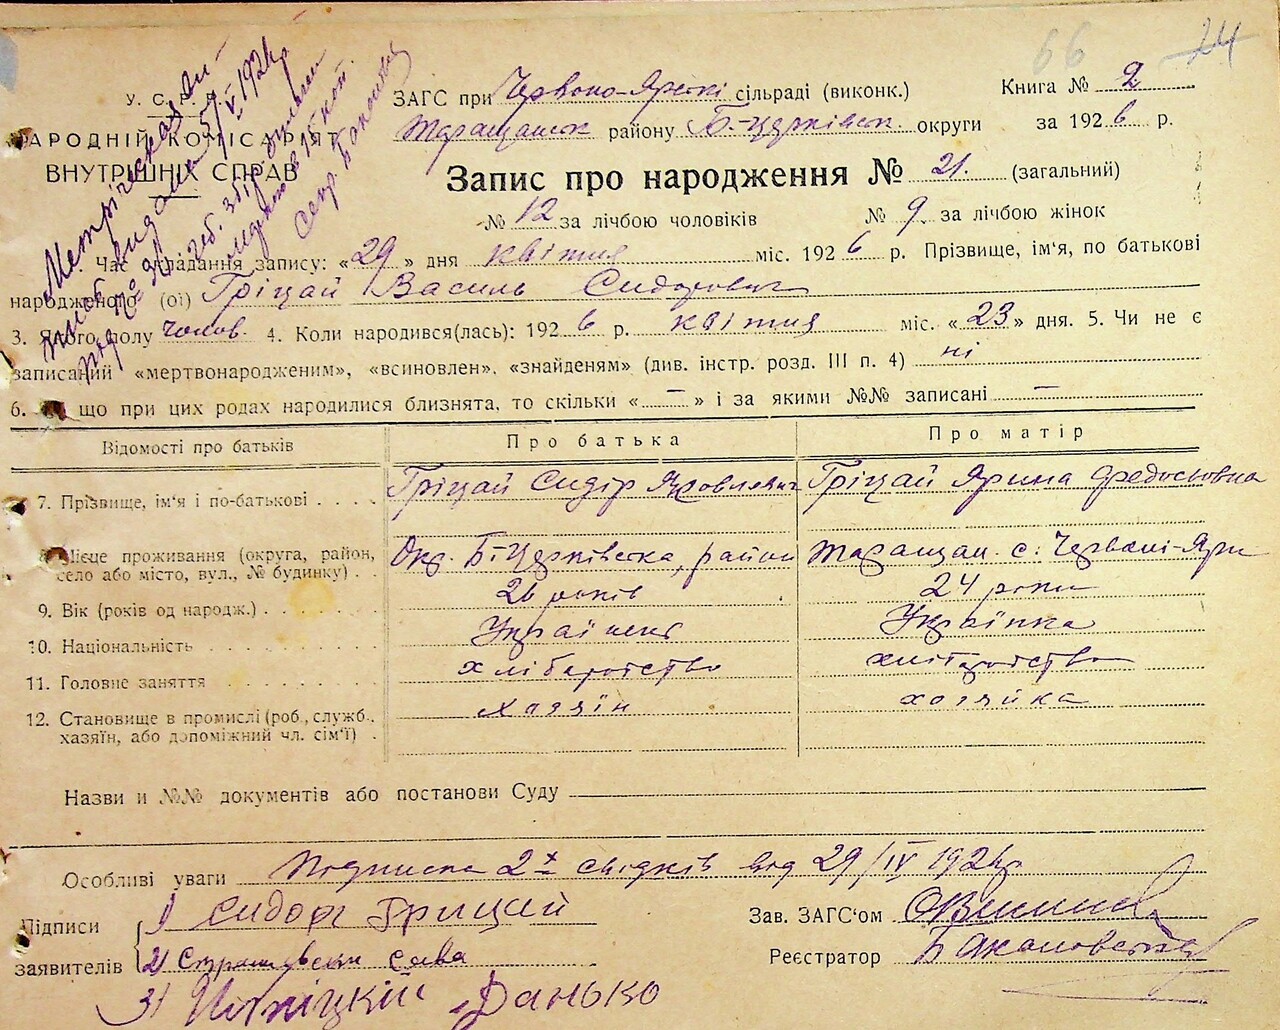 66 24
У. С. Р. Р.
НАРОДНІЙ КОМІСАРІЯТ
ВНУТРІШНІХ СПРАВ
ЗАГС при Червоно-Ярській сільраді (виконк.) Книга № 2
Таращанськ. району Б-Церківськ. округи за 1926 р.
Запис про народження № 21. (загальний)
№ 12 за лічбою чоловіків № 9 за лічбою жінок
Час складання запису: «29» дня квітня міс. 1926 р. Прізвище, ім'я, по батькові
народженого (ої) Гріцай Василь Сидорович
3. Якого полу чолов. 4. Коли народився(лась): 1926 р. квітня міс. «23» дня. 5. Чи не є
записаний «мертвонародженим», «всиновлен», «знайденям» (див. інстр. розд. III п. 4) ні
6. що при цих родах народилися близнята, то скільки «—» і за якими №№ записані —
Відомості про батьків Про батька Про матір
7. Прізвище, ім'я і по-батькові Гріцай Сидір Яковлевич Гріцай Ярина Федосіовна
8. Місце проживання (округа, район, Окр. Б-Церківська, район Таращан. с. Червоні-Яри
село або місто, вул., № будинку)
9. Вік (років од народж.) 26 років 24 роки
10. Національність Українець Українка
11. Головне заняття хліборобство хліборобство
12. Становище в промислі (роб., служб., хазяїн хозяйка
хазяїн, або допоміжний чл. сім'ї)
Назви и №№ документів або постанови Суду
Особливі уваги Подписка 2х свідків від 29/IV 1926 р
Підписи 1) Сидор Грицай Зав. ЗАГС'ом
заявителів 2) Сава Реєстратор Бакановський
3) Данько